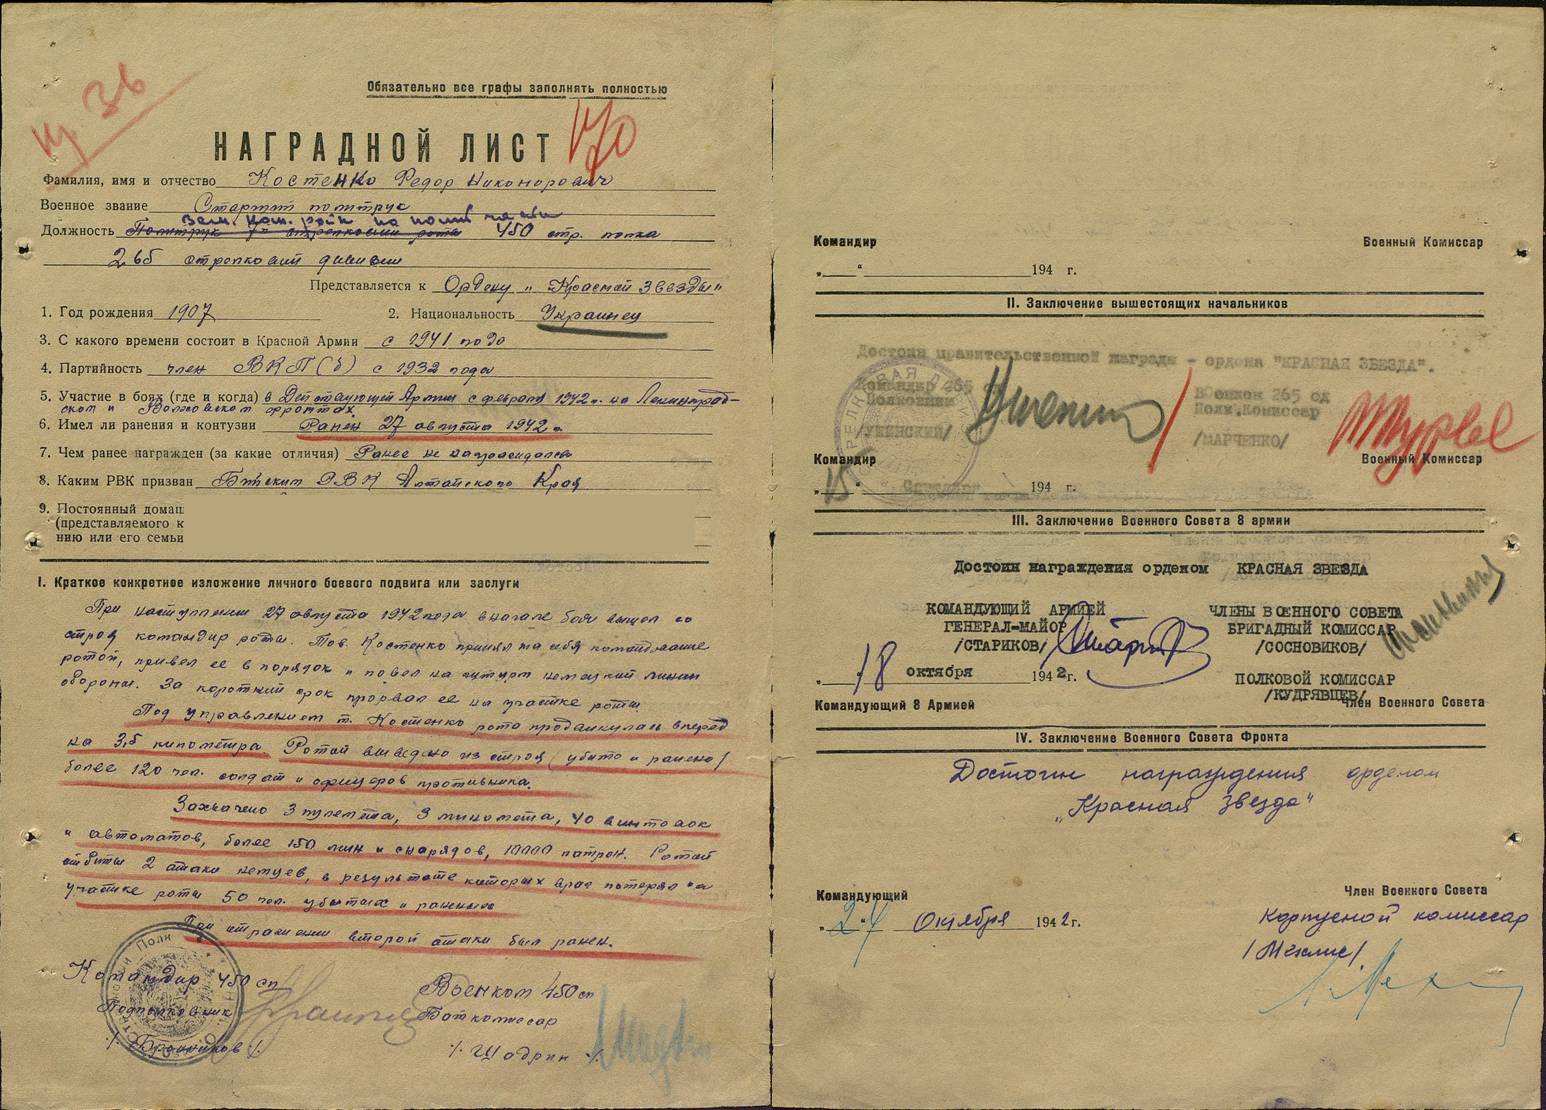 Ну 36
Обязательно все графы заполнять полностью
НАГРАДНОЙ ЛИСТ 170
Фамилия, имя и отчество Костенко Федор Никонорович
Военное звание Старший политрук
Зам. ком. роты по полит части
Должность Политрук 7й стрелковой роты 450 стр. полка
265 стрелковой дивизии
Представляется к Ордену „Красной Звезды"
1. Год рождения 1907 2. Национальность Украинец
3. С какого времени состоит в Красной Армии с 1941 года
4. Партийность член ВКП(б) с 1932 года
5. Участие в боях (где и когда) в Действующей Армии с февраля 1942 г. на Ленинград-
ском и Волховском фронтах.
6. Имел ли ранения и контузии Ранен 27 августа 1942 г.
7. Чем ранее награжден (за какие отличия) Ранее не награждался
8. Каким РВК призван Бийским РВК Алтайского Края
9. Постоянный домаш
(представляемого к
нию или его семьи
I. Краткое конкретное изложение личного боевого подвига или заслуги
При наступлении 27 августа 1942 года в начале боя вышел со
строя командир роты. Тов. Костенко принял на себя командование
ротой, привел ее в порядок и повел на штурм немецкой линии
обороны. За короткий срок прорвал ее на участке роты.
Под управлением т. Костенко рота продвинулась вперед
на 3,5 километра. Ротой выведено из строя (убито и ранено)
более 120 чел. солдат и офицеров противника.
Захвачено 3 пулемета, 3 миномета, 40 винтовок
и автоматов, более 150 мин и снарядов, 10000 патрон. Ротой
отбиты 2 атаки немцев, в результате которых враг потерял на
участке роты 50 чел. убитых и раненых
При отражении второй атаки был ранен.
Командир 450 сп Военком 450 сп
Подполковник Баткомиссар
/Бранников/ /Шодрин/
Командир Военный Комиссар
„ " 194 г.
II. Заключение вышестоящих начальников
Достоин правительственной награды - ордена "КРАСНАЯ ЗВЕЗДА".
Командир 265 сд Военком 265 сд
Полковник Полк.Комиссар
/УШИНСКИЙ/ /МАРЧЕНКО/
Командир Военный Комиссар
„15" 194 г.
III. Заключение Военного Совета 8 армии
Достоин награждения орденом КРАСНАЯ ЗВЕЗДА
КОМАНДУЮЩИЙ АРМИЕЙ ЧЛЕНЫ ВОЕННОГО СОВЕТА
ГЕНЕРАЛ-МАЙОР БРИГАДНЫЙ КОМИССАР
/СТАРИКОВ/ /СОСНОВИКОВ/
„18 октября 1942г. ПОЛКОВОЙ КОМИССАР
/КУДРЯВЦЕВ/
Командующий 8 Армией Член Военного Совета
IV. Заключение Военного Совета Фронта
Достоин награждения орденом
„Красная Звезда"
Командующий Член Военного Совета
„24" Октября 1942г. Корпусной комиссар
/Мехлис/